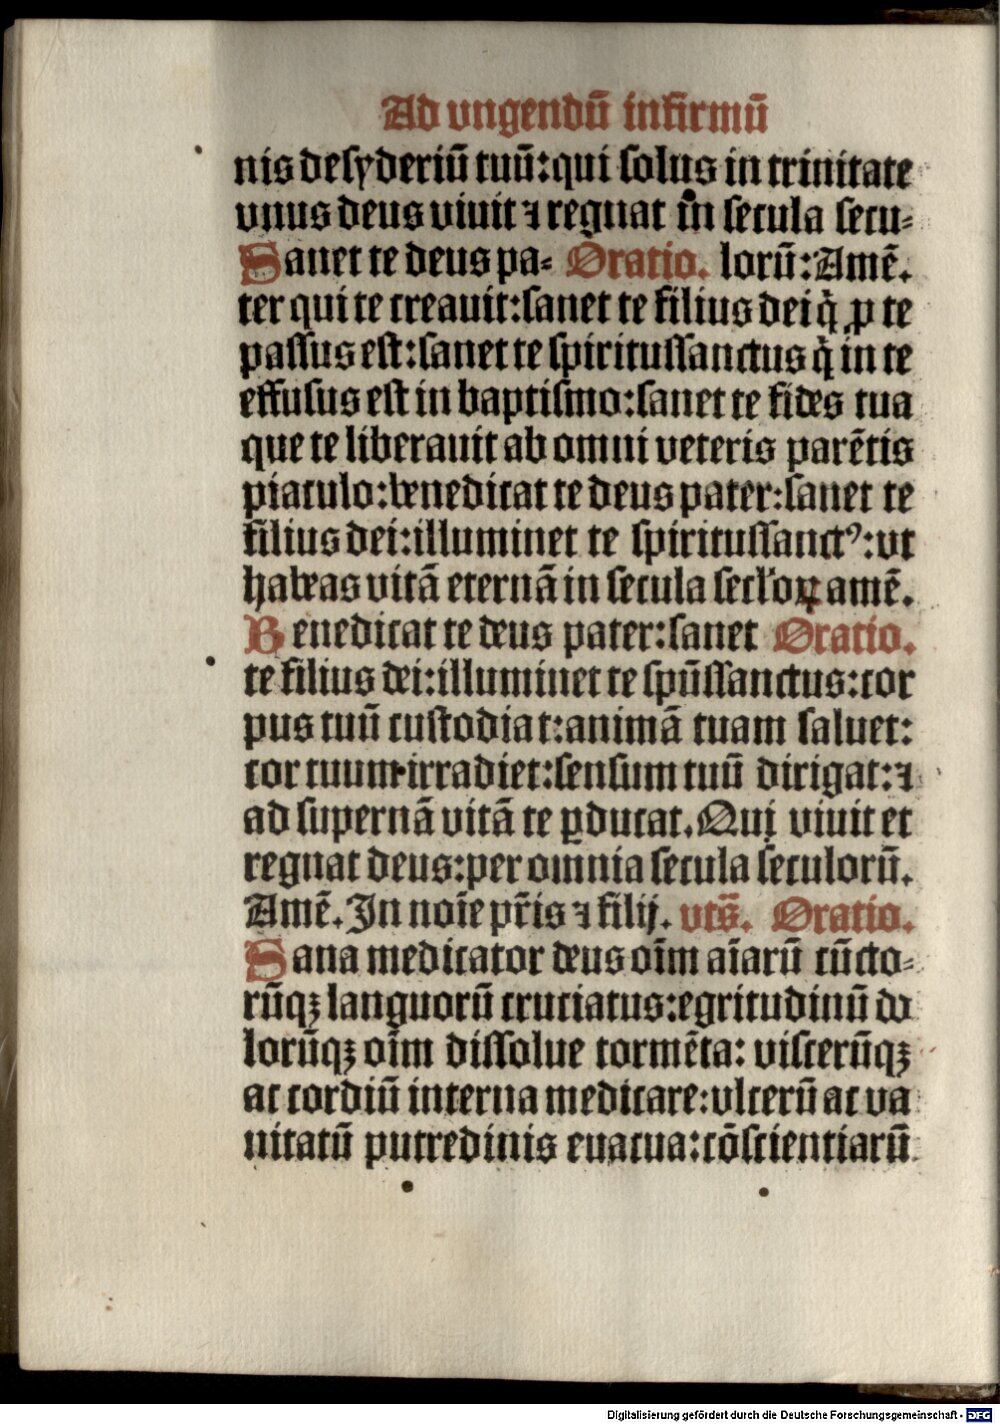 Ad vngendū infirmū
nis desyderiū tuū: qui solus in trinitate
vnus deus viuit ⁊ regnat in secula secu⸗
Sanet te deus pa⸗ Oratio. lorū: Amē.
ter qui te creauit: sanet te filius dei q̇ ꝓ te
passus est: sanet te spiritussanctus q̇ in te
effusus est in baptismo: sanet te fides tua
que te liberauit ab omni veteris parētis
piaculo: benedicat te deus pater: sanet te
filius dei: illuminet te spiritussanctꝰ: vt
habeas vitā eternā in secula secl'oꝝ amē.
Benedicat te deus pater: sanet Oratio.
te filius dei: illuminet te spūssanctus: cor
pus tuū custodiat: animā tuam saluet:
cor tuum irradiet: sensum tuū dirigat: ⁊
ad supernā vitā te ꝑducat. Qui viuit et
regnat deus: per omnia secula seculorū.
Amē. In noīe pr̄is ⁊ filij. vts̄. Oratio.
Sana medicator deus oīm aīarū cūcto⸗
rūqꝫ languorū cruciatus: egritudinū do
lorūqꝫ oīm dissolue tormēta: viscerūqꝫ
ac cordiū interna medicare: vlcerū ac va
nitatū putredinis euacua: cōscientiarū
Digitalisierung gefördert durch die Deutsche Forschungsgemeinschaft - DFG